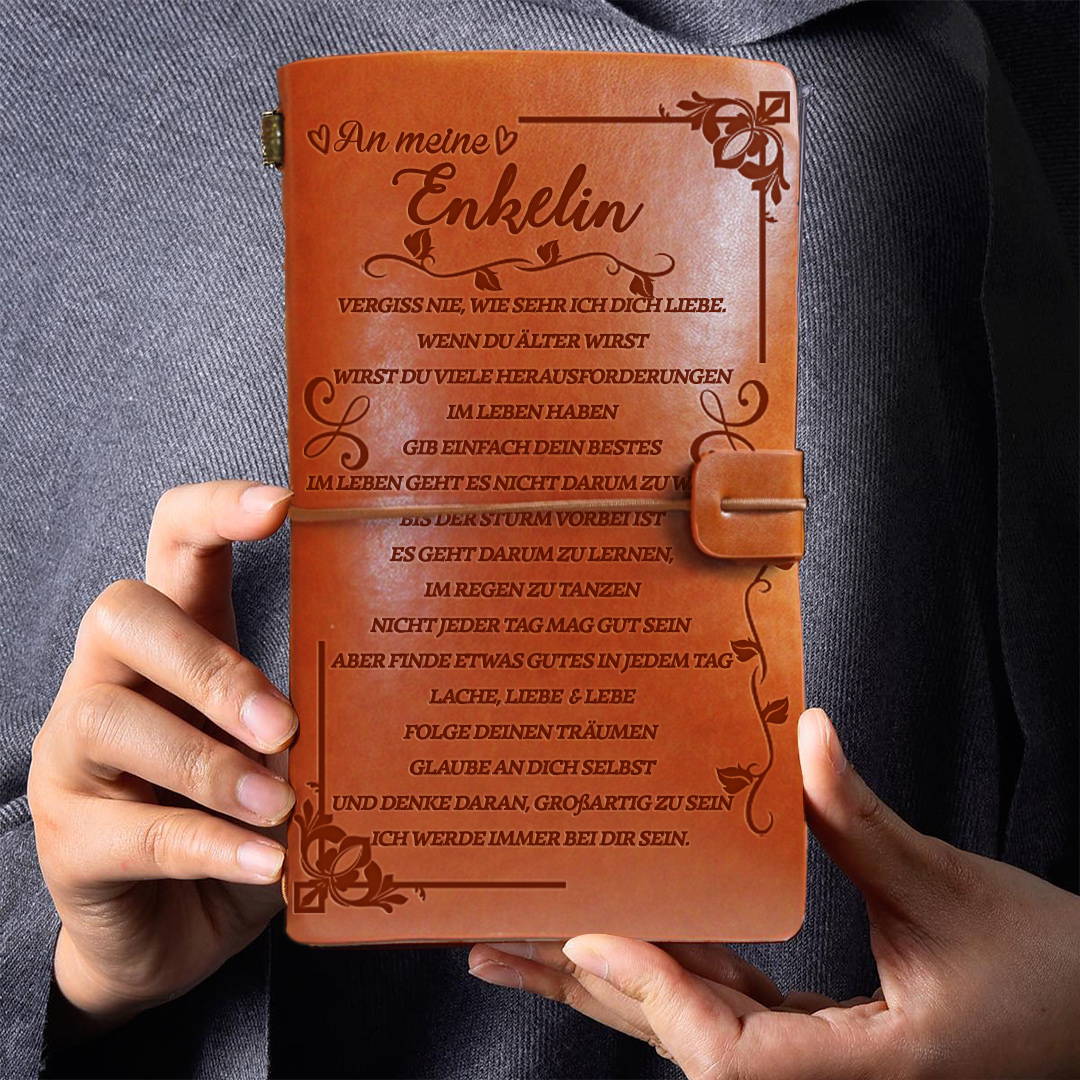 An meine
Enkelin
VERGISS NIE, WIE SEHR ICH DICH LIEBE.
WENN DU ÄLTER WIRST
WIRST DU VIELE HERAUSFORDERUNGEN
IM LEBEN HABEN
GIB EINFACH DEIN BESTES
IM LEBEN GEHT ES NICHT DARUM ZU
BIS DER STURM VORBEI IST
ES GEHT DARUM ZU LERNEN,
IM REGEN ZU TANZEN
NICHT JEDER TAG MAG GUT SEIN
ABER FINDE ETWAS GUTES IN JEDEM TAG
LACHE, LIEBE & LEBE
FOLGE DEINEN TRÄUMEN
GLAUBE AN DICH SELBST
UND DENKE DARAN, GROßARTIG ZU SEIN
ICH WERDE IMMER BEI DIR SEIN.